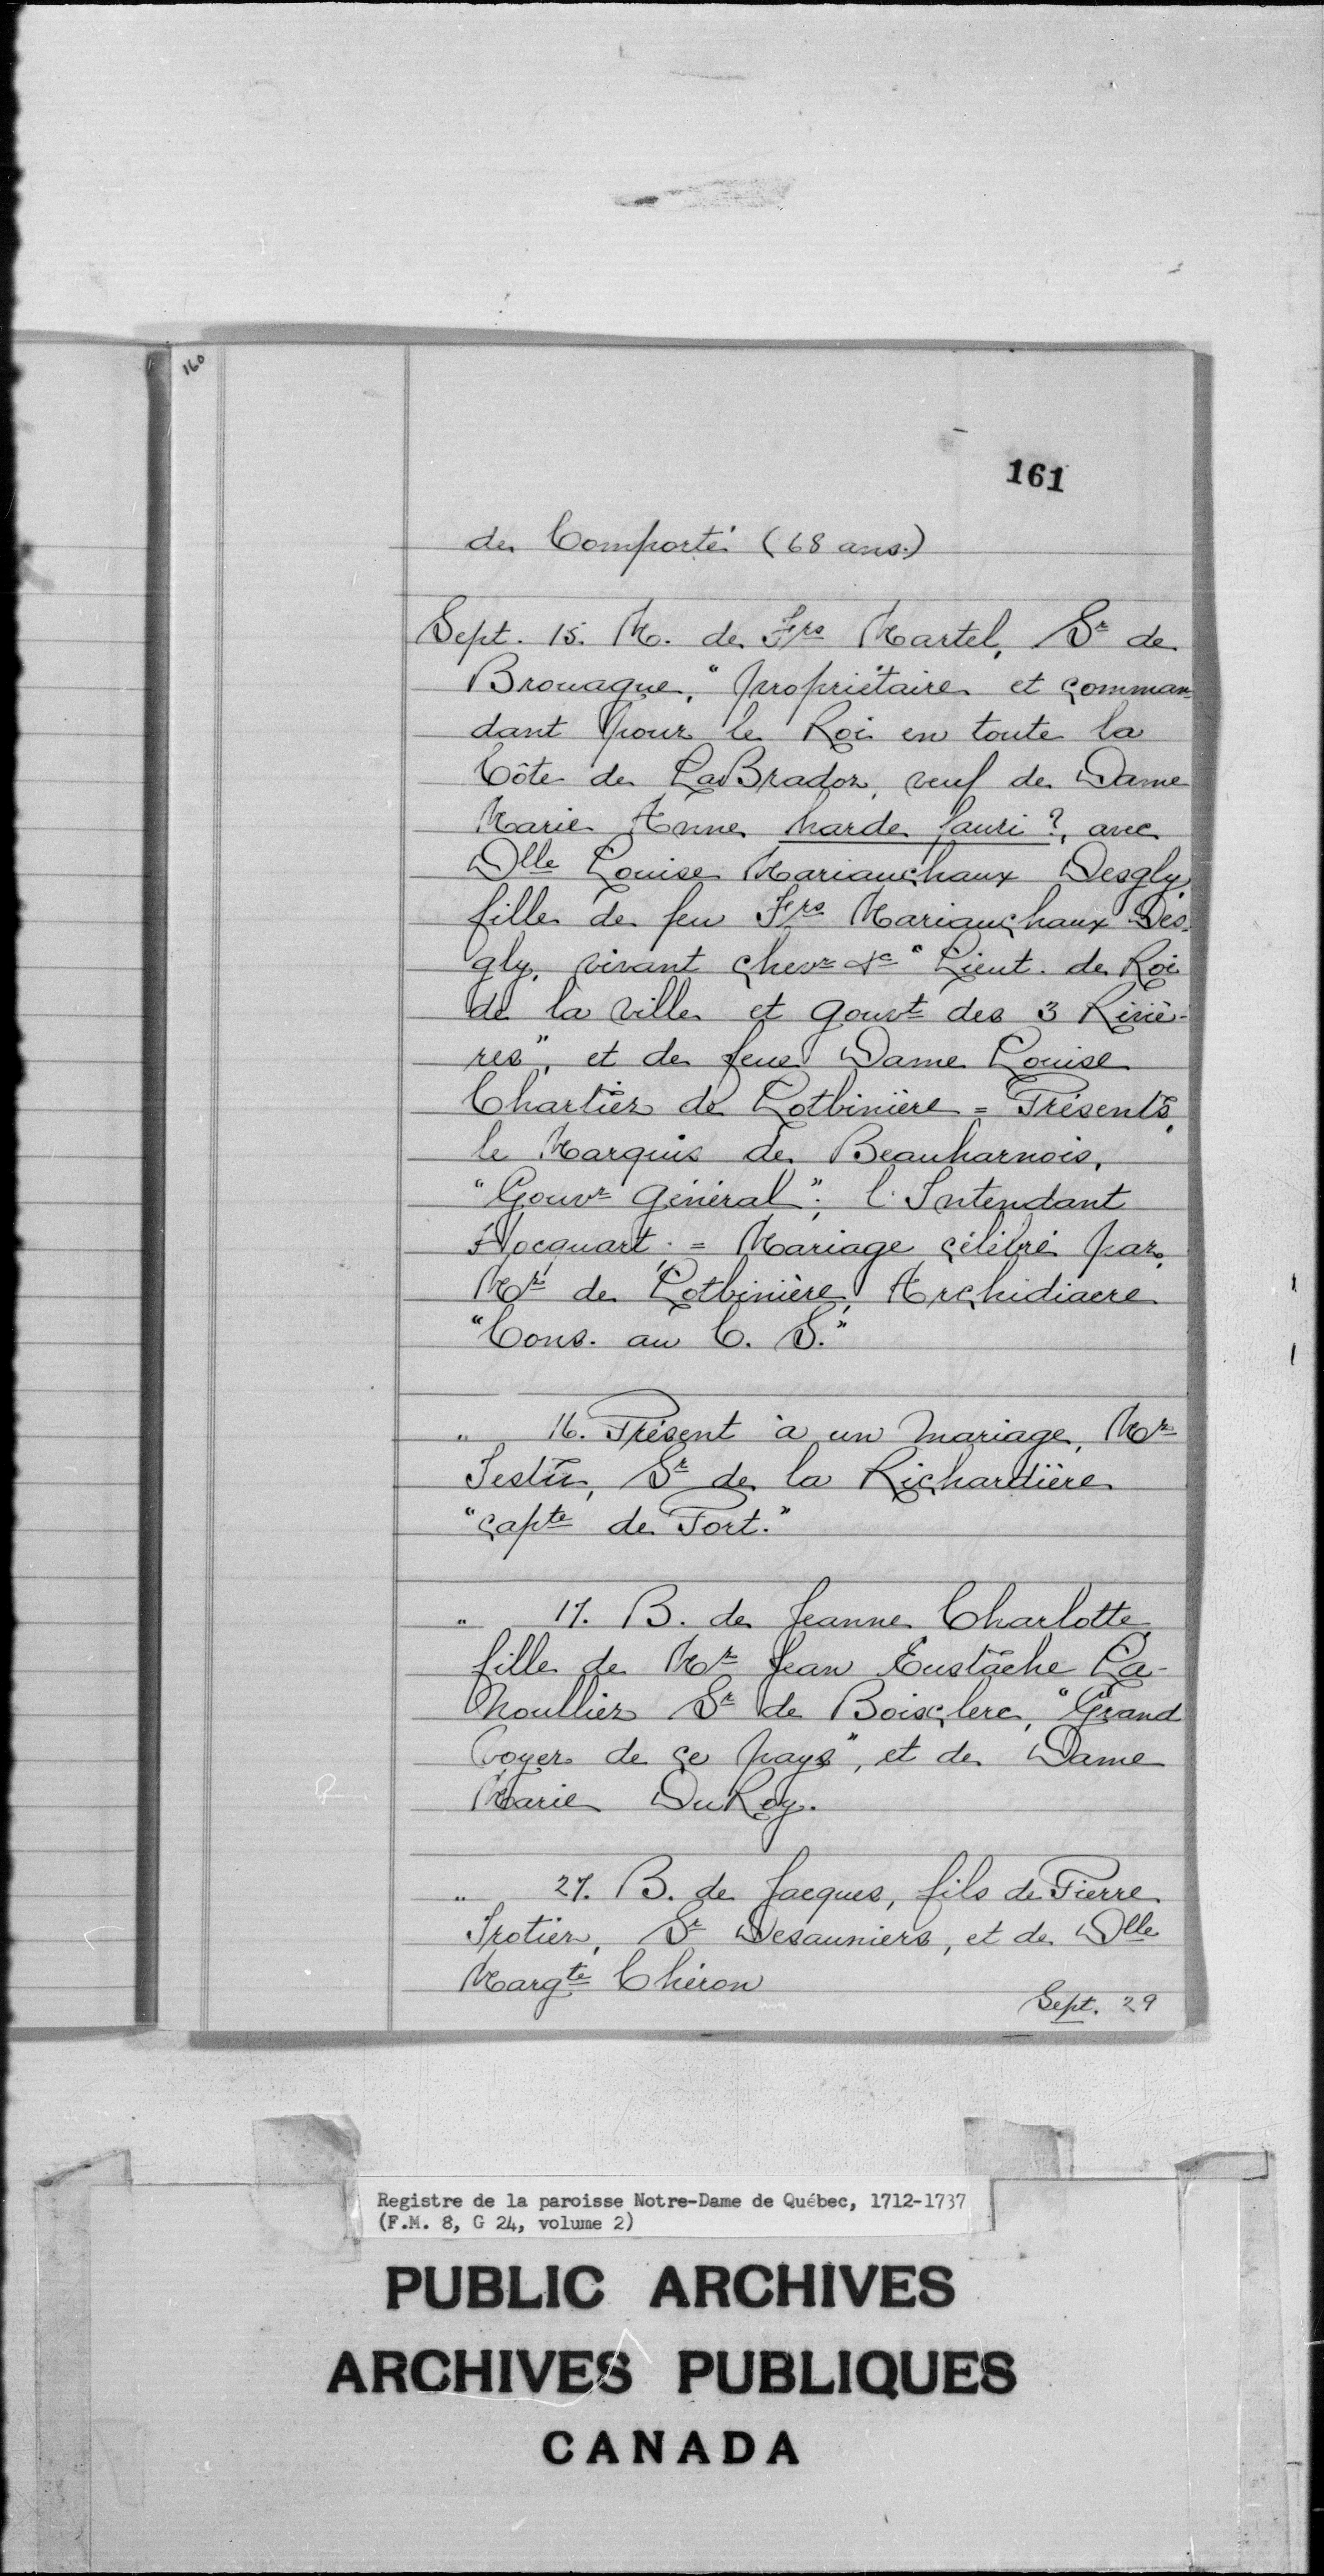 160
161
de Comporté (68 ans.)
Sept. 15. M. de Frs Martel, Sr de
Brouague, "propriétaire et comman-
dant pour le Roi en toute la
Côte de LaBrador, veuf de Dame
Marie Anne harde Jauri ?, avec
Dlle Louise Mariauchaux Desgly,
fille de feu Frs Mariauchaux Des-
gly, vivant chevr &c "Lieut. de Roi
de la ville et gouvt des 3 Riviè-
res", et de feue Dame Louise
Chartier de Lotbinière = Présents,
le Marquis de Beauharnois,
"Gouvr général"; l'Intendant
Hocquart. = Mariage célébré par
Mr de Lotbinière, Archidiacre
"Cons. au C. S."
" 16. Présent à un mariage, Mr
Testu, Sr de la Richardière
"capte de Port."
" 17. B. de Jeanne Charlotte,
fille de Mr Jean Eustache La-
noullier Sr de Boisclerc, "Grand
Voyer de ce pays", et de Dame
Marie DuRoy.
" 27. B. de Jacques, fils de Pierre
Trotier, Sr Desauniers, et de Dlle
Margte Chéron
Sept. 29
Registre de la paroisse Notre-Dame de Québec, 1712-1737
(F.M. 8, G 24, volume 2)
PUBLIC ARCHIVES
ARCHIVES PUBLIQUES
CANADA